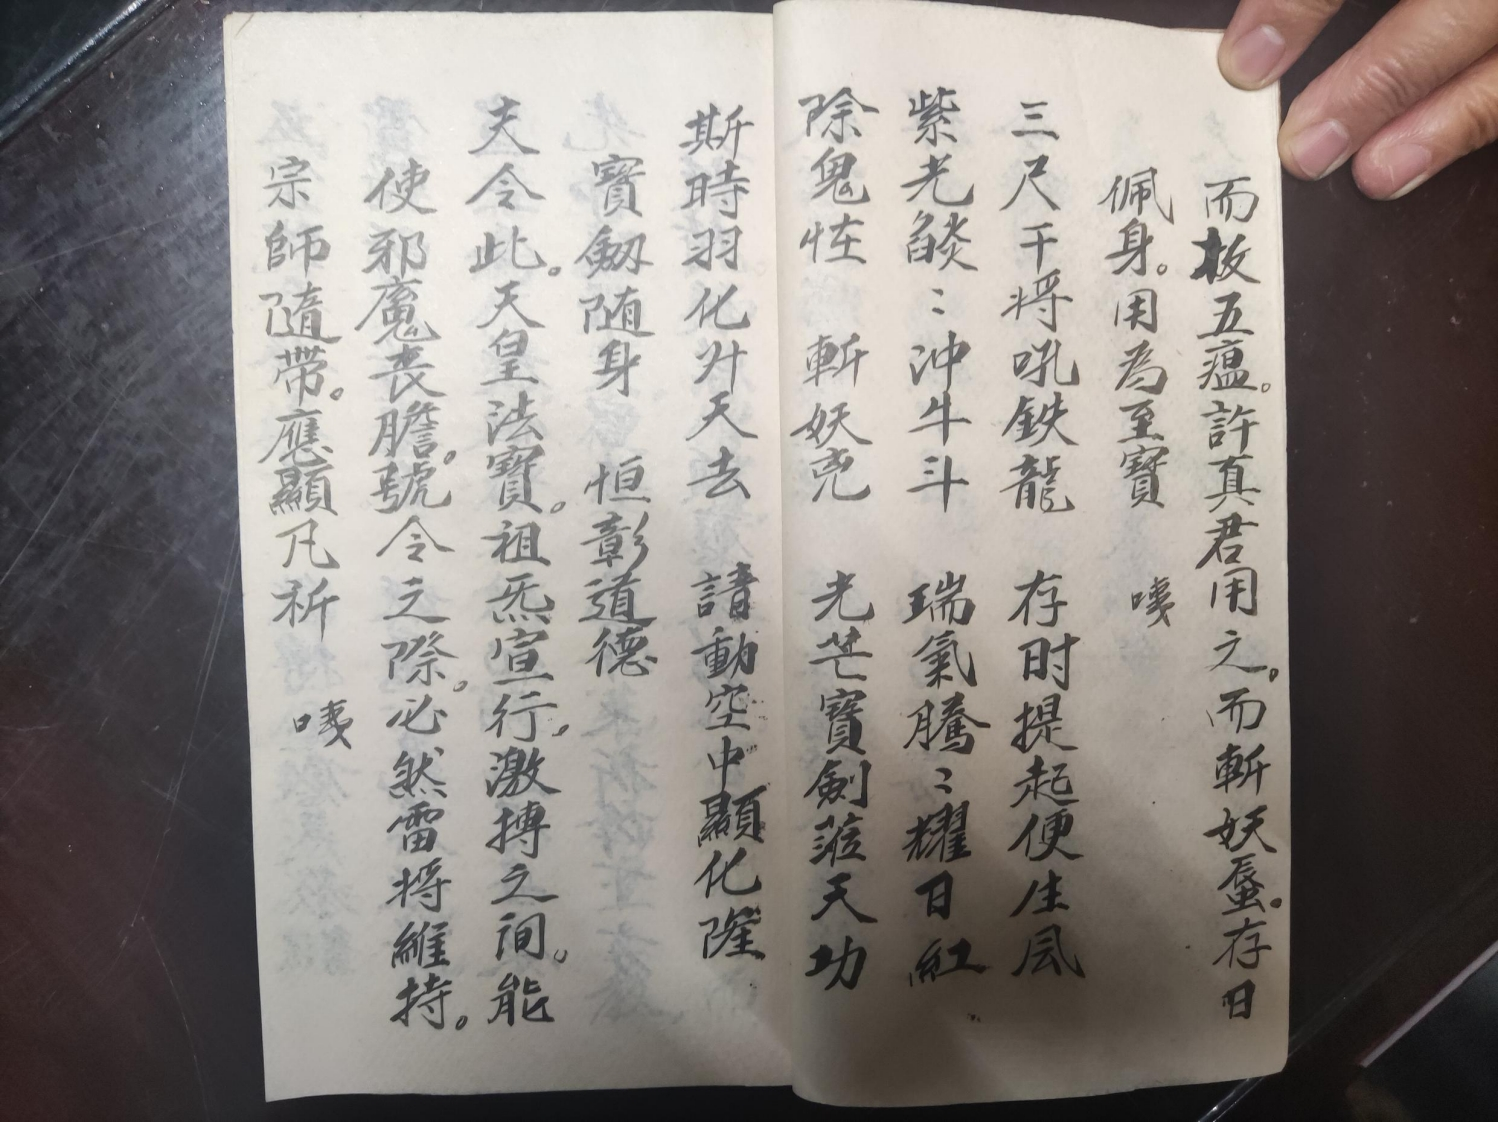 而救五瘟。許真君用之。而斬妖蜃。存日
佩身。用為至寶 嘆
三尺干将吼鉄龍 存时提起便生風
紫光燄〻沖牛斗 瑞氣騰〻耀日紅
除鬼怪 斬妖兇 光芒寶劍蒞天功
斯時羽化升天去 請動空中顯化隆
寶劔随身 恒彰道德
夫令此。天皇法寶。祖炁宣行，激搏之间。能
使邪魔丧膽。號令之際。必然雷将維持。
宗師隨帶。應顯凡祈 嘆